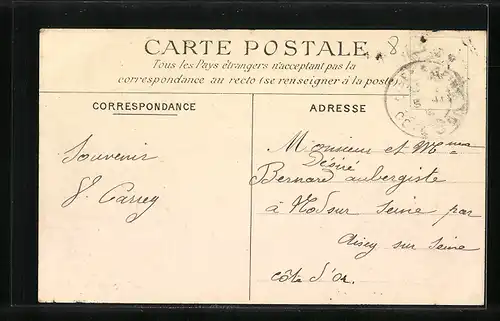 CARTE POSTALE
8
Tous les Pays étrangers n'acceptant pas la
correspondance au recto (se renseigner à la poste)
CORRESPONDANCE
ADRESSE
Souvenir
Monsieur et Mmes
Désiré
Bernard aubergiste
à Nod sur Seine par
Aisey sur Seine
Côte d'Or.